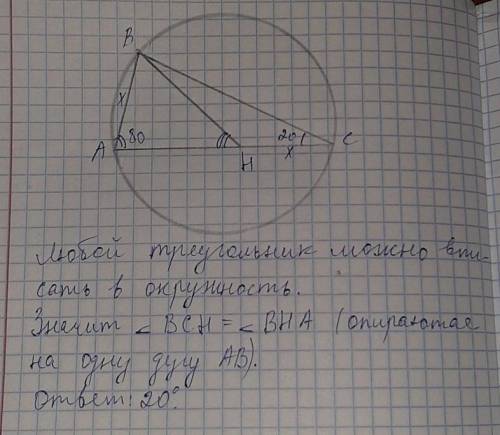 B
x
A 80 H 20 x C
Любой треугольник можно впи-
сать в окружность.
Значит ∠ BCH = ∠ BHA (опираются
на одну дугу AB).
Ответ: 20°